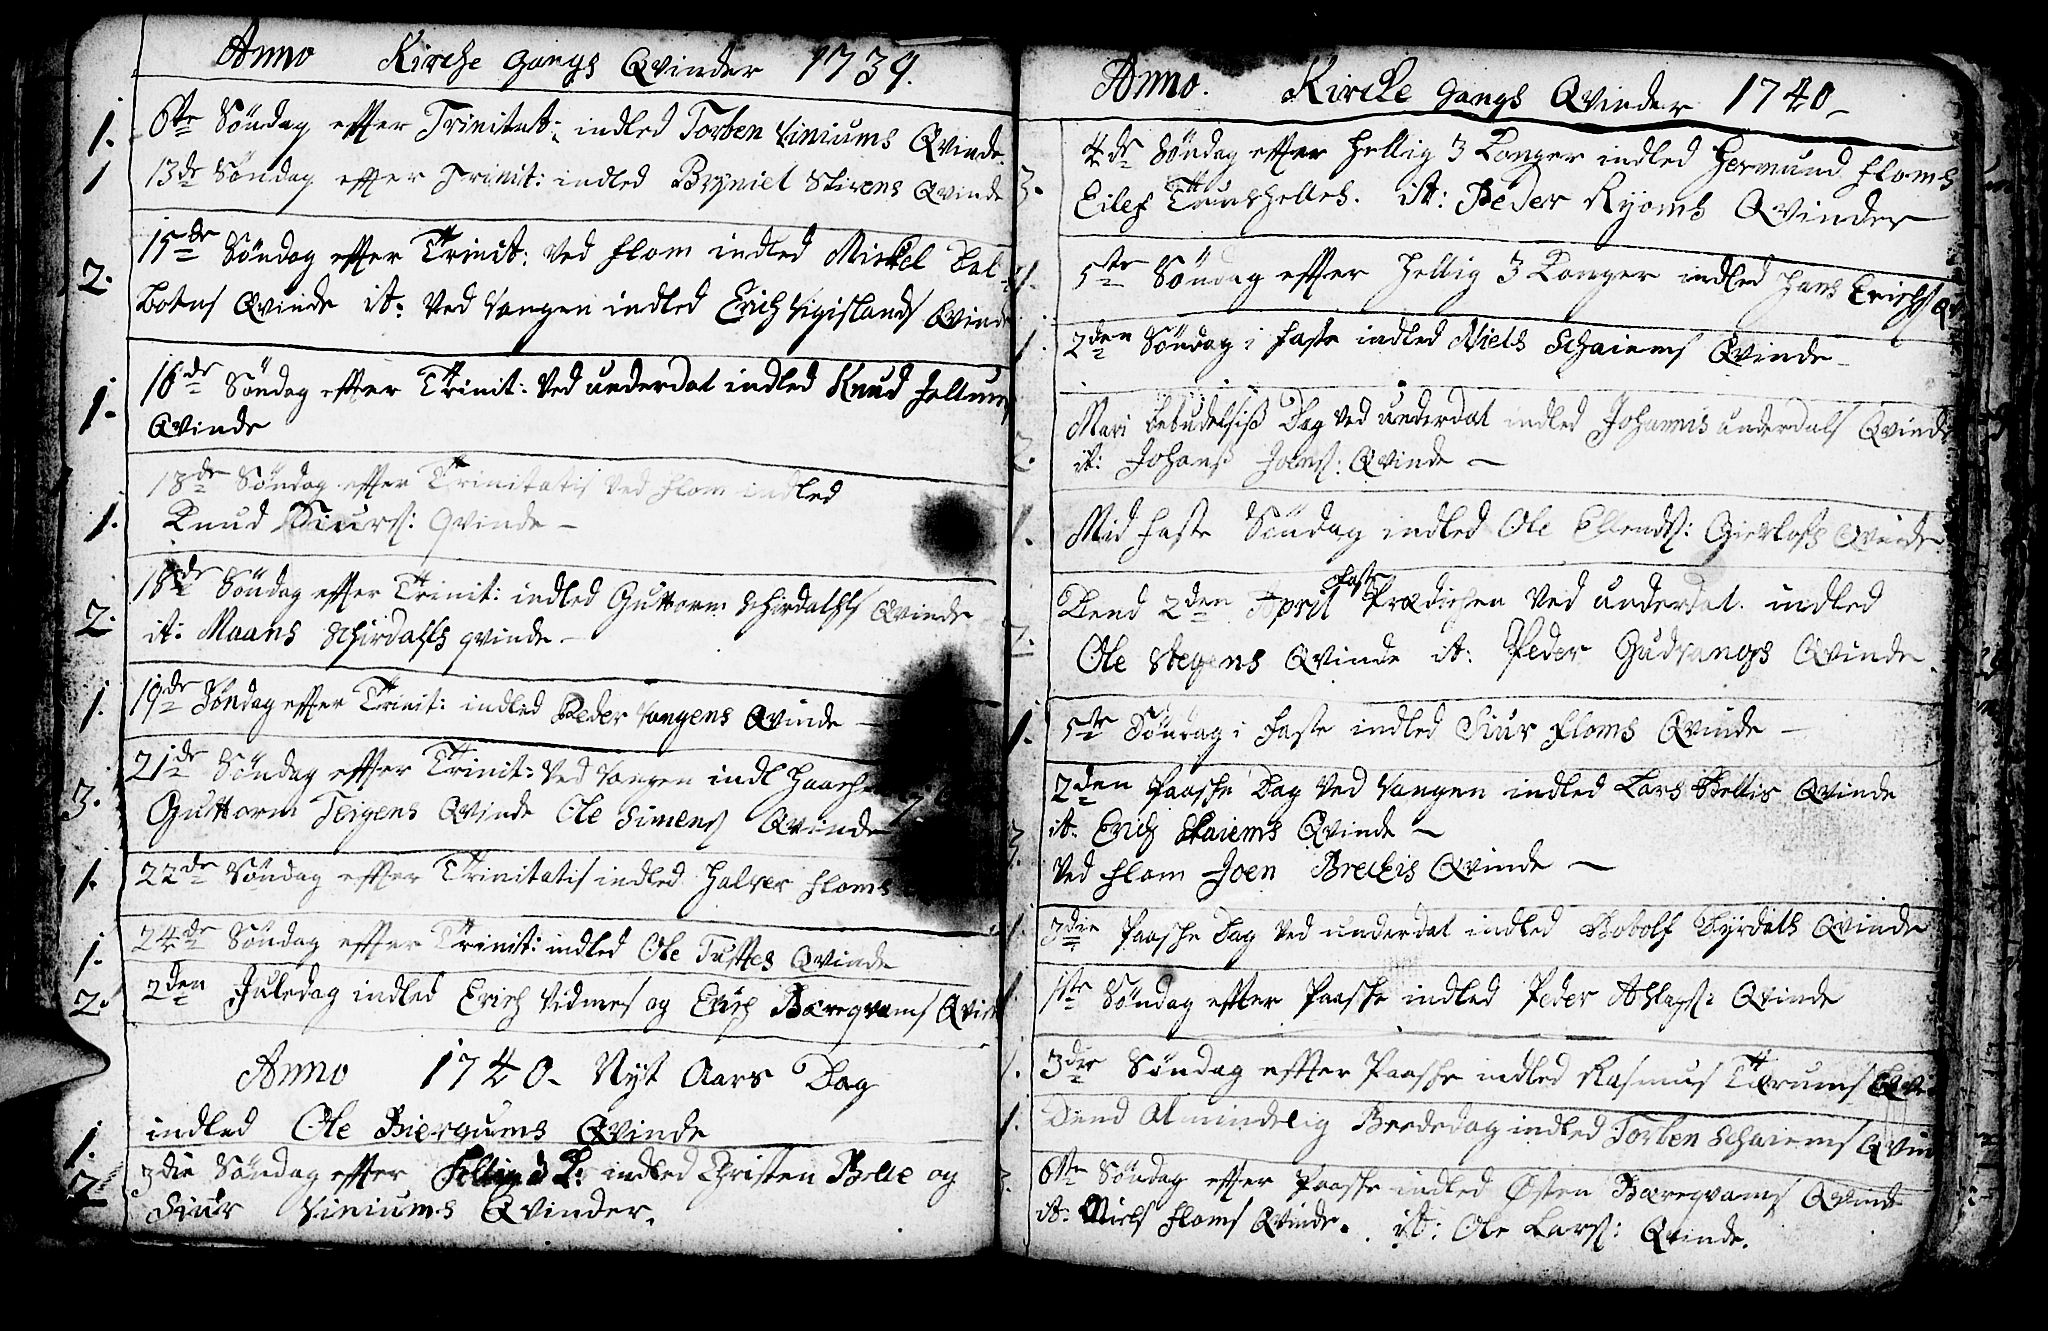 Anno Kirche gangs Qvinder 1739.
1. 6te Søndag effter Trinitat: indled Torben Viniums Qvinde.
1 13de Søndag effter Trinit: indled Bryniel Stirens Qvinde
15de Søndag effter Trinit: Ved Flom indled Mickel Dal
2. botns Qvinde it: Ved Vangen indled Erich Vigislands Qvinde
1. 16de Søndag effter Trinit: Ved underdal indled Knud
Qvinde
18de Søndag effter Trinitatis Ved Flom indled
1. Knud Siurs: Qvinde –
18de Søndag effter Trinit: indled Guttorm Schirdalss Qvinde
2. it: Maans Schirdalss qvinde –
1. 19de Søndag effter Trinit: indled Peder Vangens Qvinde –
21de Søndag effter Trinit: Ved Vangen indl
3. Guttorm Teigens Qvinde Ole Simens Qvinde
1. 22de Søndag effter Trinitatis indled Halver Floms
1. 24de Søndag effter Trinit: indled Ole Tufftes Qvinde
2. 2den Juledag indled Erich Vidmes og Erich Bæreqvams
Anno 1740. Nyt Aars Dag
1. indled Ole Biergums Qvinde
2 3die Søndag effter indled Christen Belle og
Siur Viniums Qvinder.
Anno. Kircke gangs Qvinder 1740 –
4de Søndag effter Hellig 3 Konger indled Hermund Floms
3. Eilef it: Peder Ryoms Qvinder
1. 5te Søndag effter Hellig 3 Konger indled Hans Erichs:
1. 2den Søndag i Faste indled Niels Schaiems Qvinde –
Mari bebudelsiß Dag Ved underdal indled Johannis underdals Qvinde
2. it: Johanß Joens: Qvinde –
1. Mid faste Søndag indled Ole Ellends: Gierløfs Qvinde
Faste
Dend 2den April Prædichen Ved underdal. indled
2. Ole Stegens Qvinde it: Peder Gudvangs Qvinde.
1. 5te Søndag i Faste indled Siur Floms Qvinde –
2den Paasche Dag Ved Vangen indled Lars Qvinde
3. it: Erich Skaiems Qvinde –
Ved Flom Joen Breckis Qvinde –
1. 3die Paasche Dag Ved underdal indled Bobolf Dyrdals Qvinde
1. 1ste Søndag effter Paasche indled Peder Aslags: Qvinde
1. 3die Søndag effter Paasche indled Rasmus
1. Dend Almindelig Beededag indled Torben Schaiems
3. 6te Søndag effter Paasche indled Østen Bæreqvams Qvinde
it: Niels Floms Qvinde. it: Ole Lars: Qvinde.